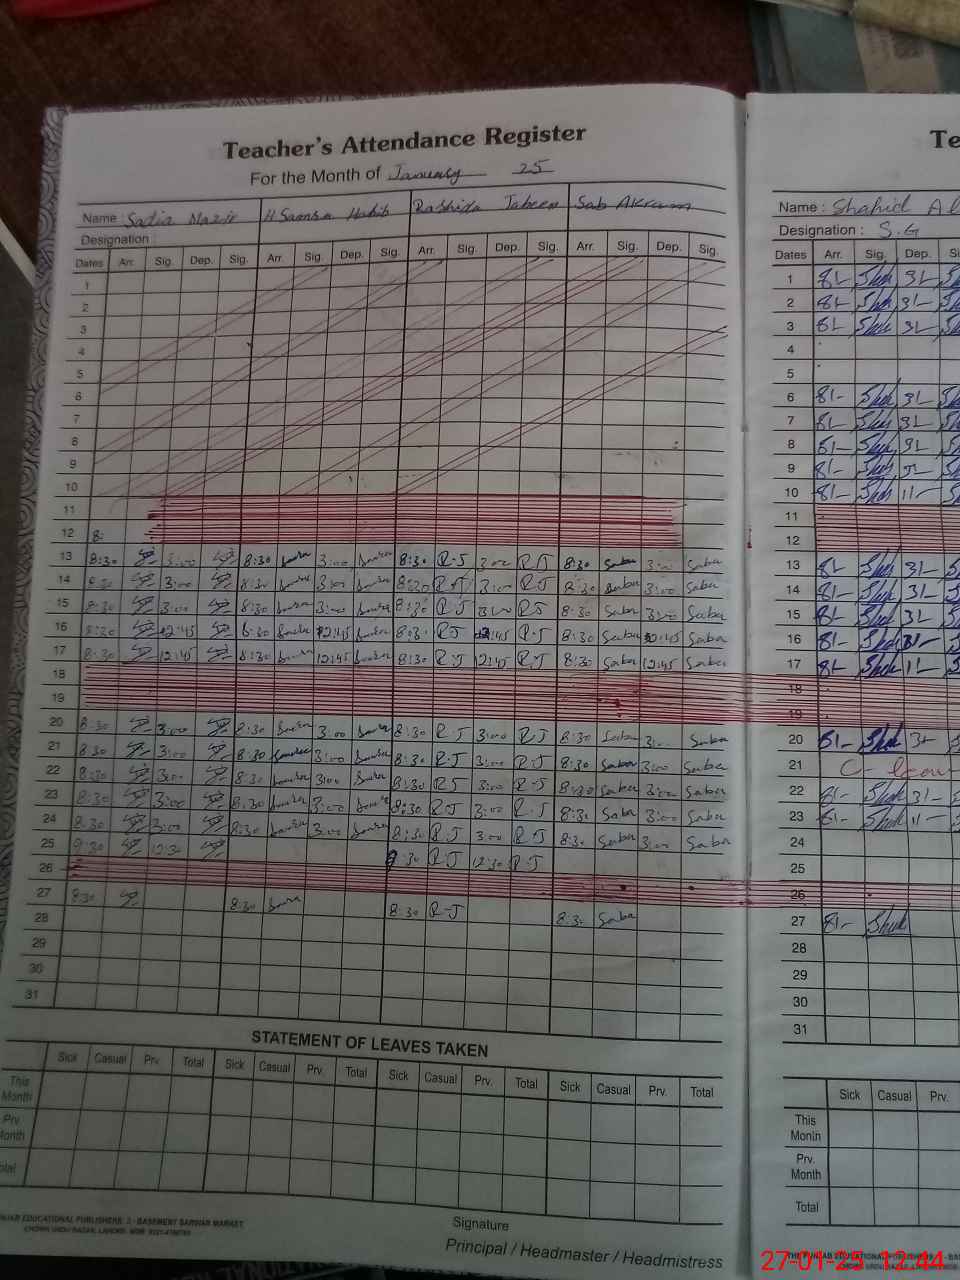 Teacher's Attendance Register
For the Month of January 25
Name : Sadia Nazir H Samra Habib Rashida Jabeen Sab Akram
Designation :
Dates Arr. Sig. Dep. Sig. Arr. Sig. Dep. Sig. Arr. Sig. Dep. Sig. Arr. Sig. Dep. Sig.
1
2
3
4
5
6
7
8
9
10
11
12 8:
13 8:30 3:00 8:30 3:00 8:30 R-J 3:00 R-J 8:30 Saba 3:00 Saba
14 8:30 3:00 8:30 3:00 8:30 R-J 3:00 R-J 8:30 Saba 3:00 Saba
15 8:30 3:00 8:30 3:00 8:30 R-J 3:00 R-J 8:30 Saba 3:00 Saba
16 8:30 12:45 8:30 12:45 8:30 R-J 12:45 R-J 8:30 Saba 12:45 Saba
17 8:30 12:45 8:30 12:45 8:30 R-J 12:45 R-J 8:30 Saba 12:45 Saba
18
19
20 8:30 3:00 8:30 3:00 8:30 R-J 3:00 R-J 8:30 Saba 3:00 Saba
21 8:30 3:00 8:30 3:00 8:30 R-J 3:00 R-J 8:30 Saba 3:00 Saba
22 8:30 3:00 8:30 3:00 8:30 R-J 3:00 R-J 8:30 Saba 3:00 Saba
23 8:30 3:00 8:30 3:00 8:30 R-J 3:00 R-J 8:30 Saba 3:00 Saba
24 8:30 3:00 8:30 3:00 8:30 R-J 3:00 R-J 8:30 Saba 3:00 Saba
25 9:30 12:30 9:30 R-J 12:30 R-J
26
27 8:30 8:30 8:30 R-J 8:30 Saba
28
29
30
31
STATEMENT OF LEAVES TAKEN
Sick Casual Prv. Total Sick Casual Prv. Total Sick Casual Prv. Total Sick Casual Prv. Total
This Month
Prv. Month
Total
PUNJAB EDUCATIONAL PUBLISHERS: 3 - BASEMENT SARWAR MARKET
CHOWK URDU BAZAR, LAHORE.
Signature
Principal / Headmaster / Headmistress
Te
Name : Shahid Al
Designation : S.G
Dates Arr. Sig. Dep. Si
1 8/- Shah 3/-
2 8/- Shah 3/-
3 8/- Shah 3/-
4
5
6 8/- Shah 3/-
7 8/- Shah 3/-
8 8/- Shah 3/-
9 8/- Shah 3/-
10 8/- Shah 11-
11
12
13 8/- Shah 3/-
14 8/- Shah 3/-
15 8/- Shah 3/-
16 8/- Shah 3/-
17 8/- Shah 11-
18
19
20 8/- Shah 3/-
21 C- leav
22 8/- Shah 3/-
23 8/- Shah 11-
24
25
26
27 8/- Shah
28
29
30
31
Sick Casual Prv.
This Month
Prv. Month
Total
THE PUNJAB EDUCATIONAL PUBLISHERS: 3 - BAS
27-01-25 12:44